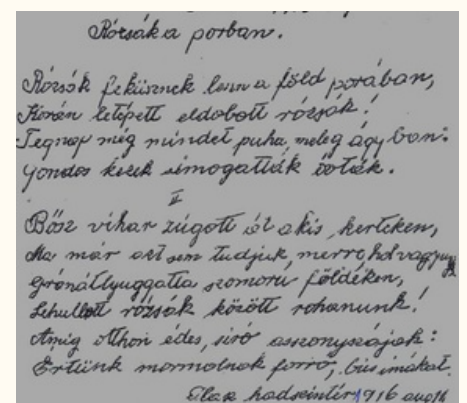 Rózsák a porban.
Rózsák feküsznek lenn a föld porában,
Korán letépett eldobott rózsák!
Tegnap még mindet puha, meleg ágyban:
Gondos kezek simogatták óvták.
II
Bősz vihar zúgott át a kis kerteken,
Ma már azt sem tudjuk, merre hol vagyunk
Gránátlyuggatta szomorú földéken,
Lehullott rózsák között rohanunk!
Amig otthon édes, síró asszonyszájak:
Értünk mormolnak forró, bús imákat.
Olasz hadszintér 1916 aug 16